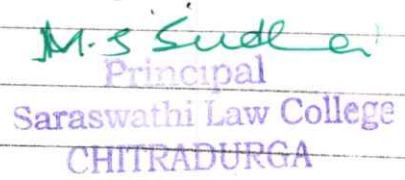 M.S Sudha
Principal
Saraswathi Law College
CHITRADURGA